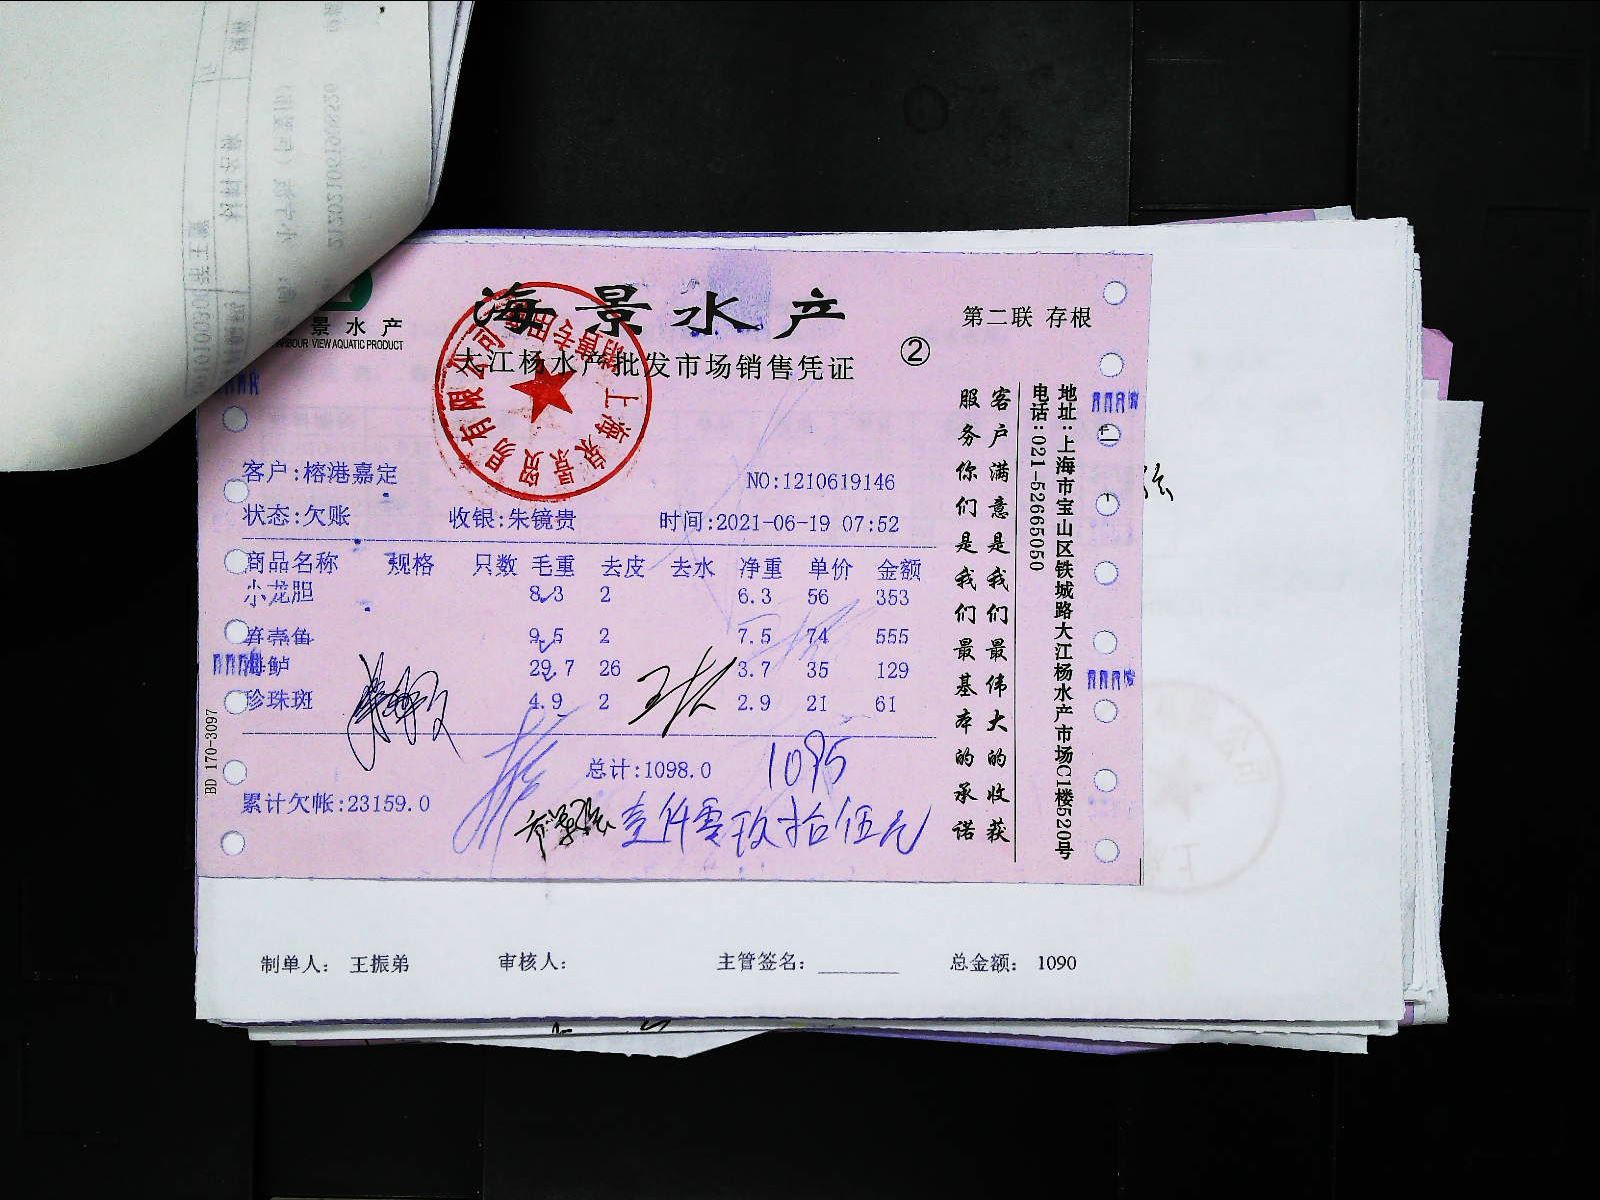 海景水产
景水产
HARBOUR VIEW AQUATIC PRODUCT
大江杨水产批发市场销售凭证
②
第二联 存根
客户:榕港嘉定
NO:1210619146
状态:欠账 收银:朱镜贵 时间:2021-06-19 07:52
商品名称 规格 只数 毛重 去皮 去水 净重 单价 金额
小龙胆 8.3 2 6.3 56 353
9.5 2 7.5 74 555
海鲈 29.7 26 3.7 35 129
珍珠斑 4.9 2 2.9 21 61
总计:1098.0
1095
累计欠帐:23159.0
壹仟零玖拾伍元
BD 170-3097
客户满意是我们最伟大的收获
服务你们是我们最基本的承诺
地址:上海市宝山区铁城路大江杨水产市场C1楼520号
电话:021-52665050
制单人: 王振弟 审核人: 主管签名: 总金额: 1090